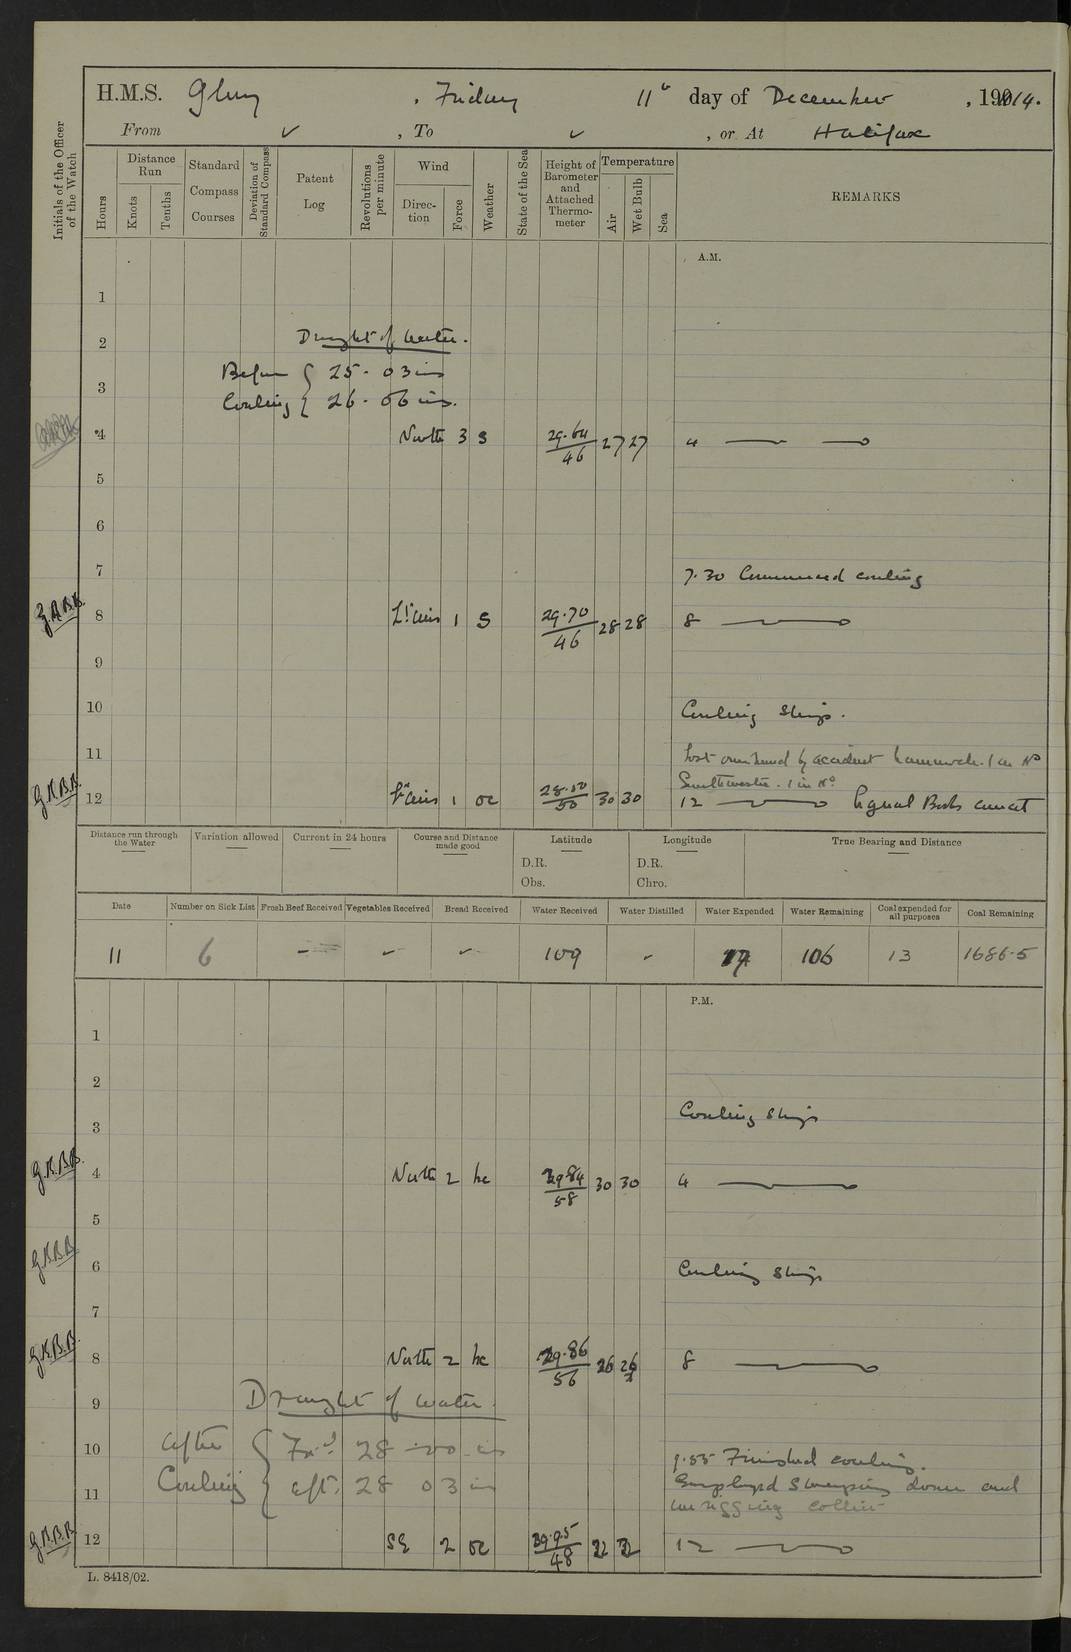 H.M.S. Glory, Friday 11th day of December, 1914.
From ✓, To ✓, or At Halifax
Initials of the Officer of the Watch
Hours
Distance Run
Knots
Tenths
Standard Compass Courses
Deviation of Standard Compass
Patent Log
Revolutions per minute
Wind
Direction
Force
Weather
State of the Sea
Height of Barometer and Attached Thermometer
Temperature
Air
Wet Bulb
Sea
REMARKS
A.M.
1
2 Draught of Water.
Before { 25 - 03 ins
3
Coaling { 26 - 06 ins.
4 North 3 S 29.64/46 27 27 4
5
6
7 7.30 Commenced coaling
G.K.B.B. 8 Lt airs 1 S 29.70/46 28 28 8
9
10 Coaling Ship.
11 Lost overboard by accident 1 in No
Southwester. 1 in No.
G.K.B.B. 12 Lt airs 1 oc 50 30 30 12
Distance run through the Water
Variation allowed
Current in 24 hours
Course and Distance made good
Latitude
D.R.
Obs.
Longitude
D.R.
Chro.
True Bearing and Distance
Date
Number on Sick List
Fresh Beef Received
Vegetables Received
Bread Received
Water Received
Water Distilled
Water Expended
Water Remaining
Coal expended for all purposes
Coal Remaining
11 6 - - - 109 - 106 13 1686.5
P.M.
1
2
Coaling Ship
3
G.K.B.B. 4 North 2 bc 29.84/58 30 30 4
5
G.K.B.B. 6 Coaling Ship
7
G.K.B.B. 8 North 2 bc 29.86/56 26 26 8
9 Draught of Water.
After { For'd 28 - 00 ins
10 Finished coaling.
Coaling { aft. 28 03 ins
Employed sweeping down and
11
unrigging collier
G.K.B.B. 12 SE 2 oc 48 32 32 12
L. 8418/02.